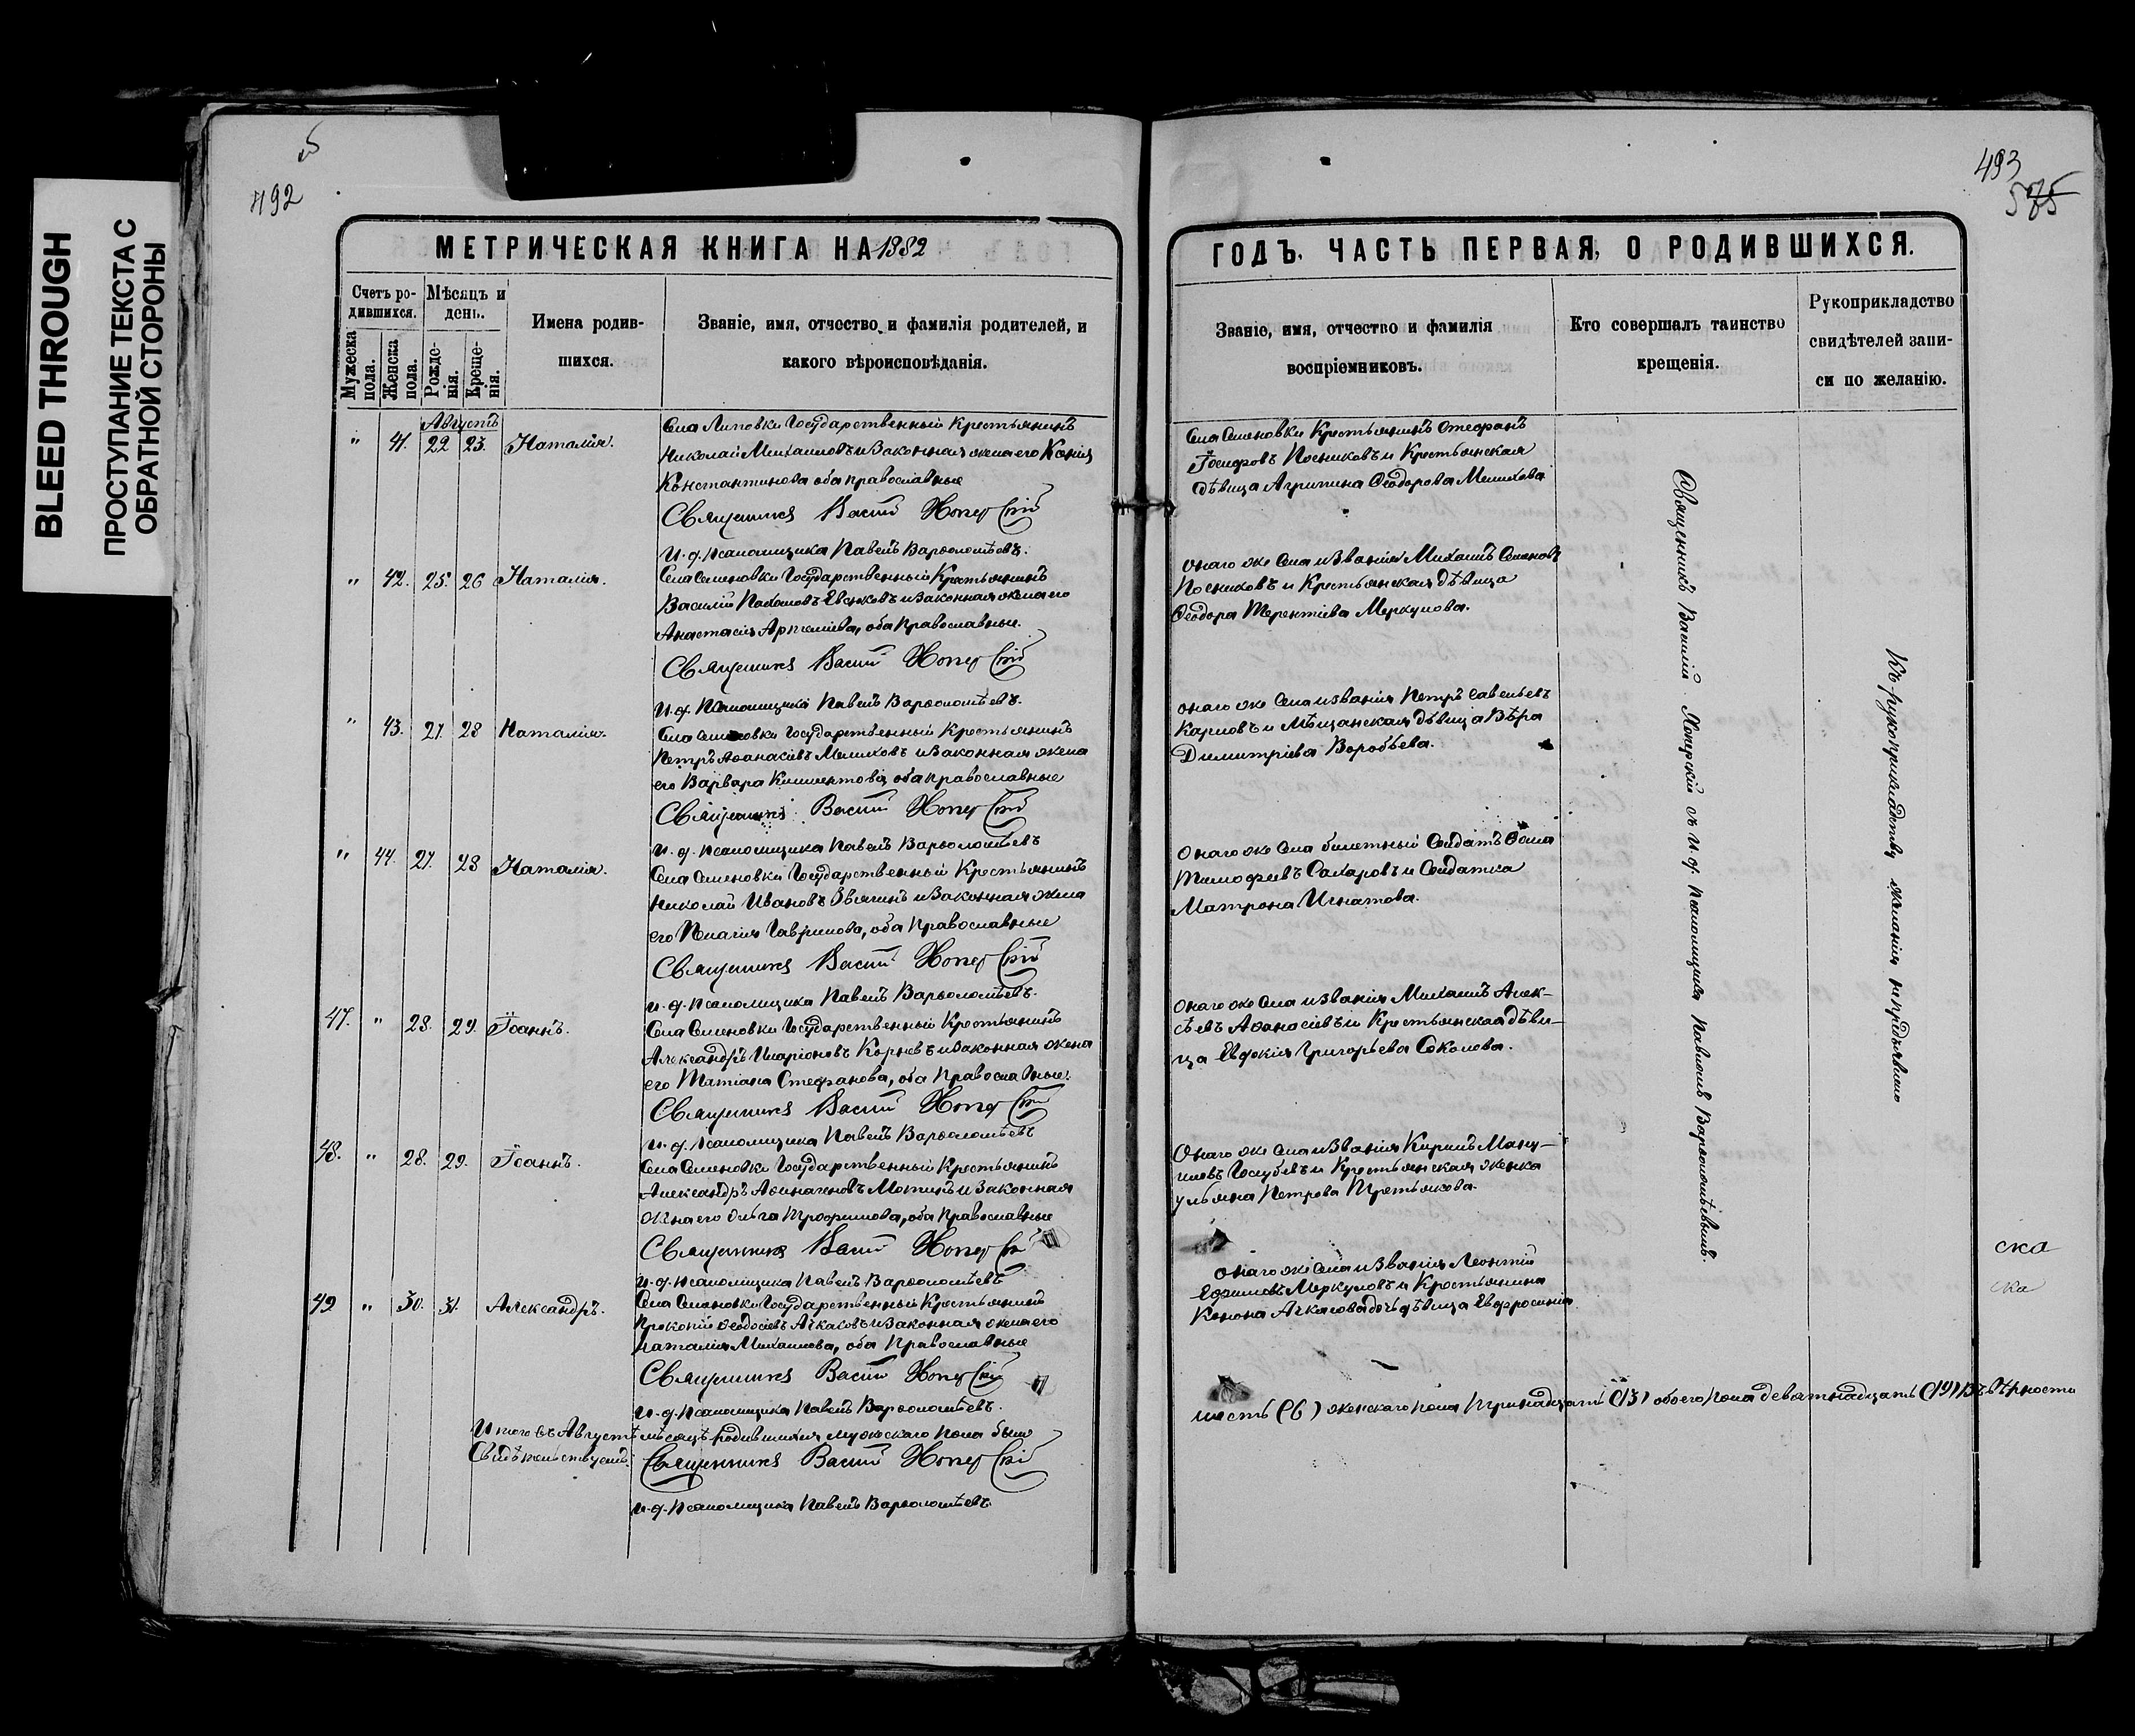 BLEED THROUGH
ПРОСТУПАНИЕ ТЕКСТА С
ОБРАТНОЙ СТОРОНЫ
492
493
575
МЕТРИЧЕСКАЯ КНИГА НА 1882
ГОДЪ, ЧАСТЬ ПЕРВАЯ, О РОДИВШИХСЯ.
Счетъ ро-
дившихся.
Мужеска
пола.
Женска
пола.
Мѣсяцъ и
день.
Рожде-
нія.
Креще-
нія.
Имена родив-
шихся.
Званіе, имя, отчество и фамилія родителей, и
какого вѣроисповѣданія.
Званіе, имя, отчество и фамилія
воспріемниковъ.
Кто совершалъ таинство
крещенія.
Рукоприкладство
свидѣтелей запи-
си по желанію.
Августъ
" 41. 22 23. Наталія.
Села Липовки Государственный Крестьянинъ
Николай Михаиловъ и Законная жена его Ксенія
Константинова оба православные
Священникъ Василій Хоперскій
И. д. псаломщика Павелъ Варѳоломѣевъ.
Села Семеновки Крестьянинъ Стефанъ
Іосифовъ Посниковъ и Крестьянская
дѣвица Агрипина Ѳеодорова Мелихова
" 42. 25. 26 Наталія.
Села Семеновки Государственный Крестьянинъ
Василій Пахомовъ Евсюковъ и Законная жена его
Анастасія Артемова, оба православные.
Священникъ Василій Хоперскій
И. д. Псаломщика Павелъ Варѳоломѣевъ.
онаго же Села и званія Михаилъ Семеновъ
Посниковъ и Крестьянская дѣвица
Ѳеодора Терентіева Меркулова.
" 43. 27. 28 Наталія.
Села Семеновки Государственный Крестьянинъ
Петръ Аѳанасіевъ Мелиховъ и Законная жена
его Варвара Климентова, оба православные
Священникъ Василій Хоперскій
И. д. псаломщика Павелъ Варѳоломѣевъ
онаго же Села и званія Петръ Савельевъ
Карповъ и Мѣщанская дѣвица Вѣра
Димитріева Воробьева.
" 44. 27. 28 Наталія.
Села Семеновки Государственный Крестьянинъ
Николай Ивановъ Звягинъ и Законная жена
его Пелагія Гаврилова, оба православные
Священникъ Василій Хоперскій
и. д. псаломщика Павелъ Варѳоломѣевъ.
Онаго же Села билетный Солдатъ Ѳома
Тимофеевъ Сахаровъ и Солдатка
Матрона Игнатова.
47. " 28. 29. Іоаннъ.
Села Семеновки Государственный Крестьянинъ
Александръ Иларіоновъ Корневъ и Законная жена
его Татіана Стефанова, оба Православные.
Священникъ Василій Хоперскій
и. д. псаломщика Павелъ Варѳоломѣевъ
Онаго же Села и званія Михаилъ Алек-
сѣевъ Аѳанасіевъ и Крестьянская дѣви-
ца Евдокія Григорьева Соколова.
48. " 28. 29. Іоаннъ.
Села Семеновки Государственный Крестьянинъ
Александръ Мотинъ и Законная
жена его Ольга Трофимова, оба православные
Священникъ Василій Хоперскій
и. д. псаломщика Павелъ Варѳоломѣевъ
Онаго же Села и званія КирилъМану-
иловъ Голубевъ и Крестьянская женка
Ульяна Петрова Третьякова.
49 " 30. 31. Александръ.
Села Семеновки Государственный Крестьянинъ
Прокопій Ѳеодосіевъ Ачкасовъ и Законная жена его
Наталія Михаилова, оба Православные
Священникъ Василій Хоперскій
и. д. псаломщика Павелъ Варѳоломѣевъ.
онаго же Села и званія Леонтій
Ефимовъ Меркуловъ и Крестьянина
Конона Ачкасова дочь дѣвица Евфросинія
Священникъ Василій Хоперскій съ и. д. псаломщика Павломъ Варѳоломѣевымъ.
Къ рукоприкладству желанія не предъявлено
ска
ска
Итого въ Августѣ мѣсяцѣ родившихся мужскаго пола было
шесть (6) женскаго пола тринадцать (13) обоего пола девятнадцать (19) Въ вѣрности
Свидѣтельствуемъ: Священникъ Василій Хоперскій
и. д. псаломщика Павелъ Варѳоломѣевъ.